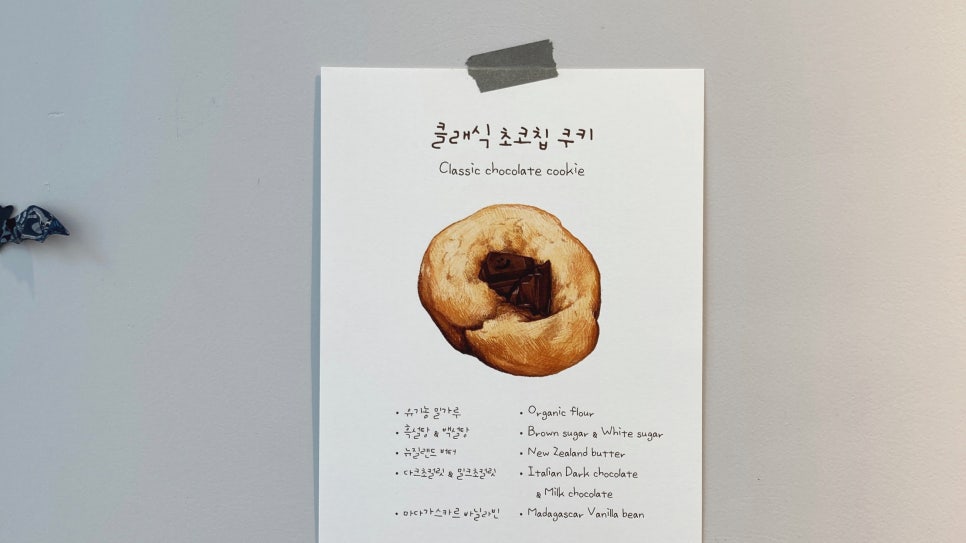 클래식 초코칩 쿠키
Classic chocolate cookie
• 유기농 밀가루
• 흑설탕 & 백설탕
• 뉴질랜드 버터
• 다크초컬릿 & 밀크초컬릿
• 마다가스카르 바닐라빈
• Organic flour
• Brown sugar & White sugar
• New Zealand butter
• Italian Dark chocolate
& Milk chocolate
• Madagascar Vanilla bean